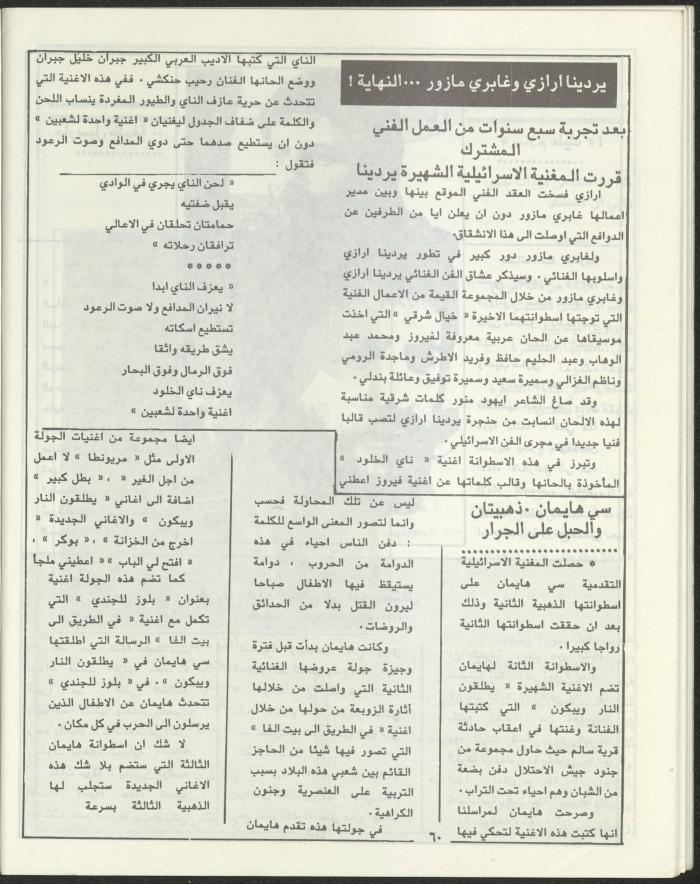 يردينا ارازي وغابري مازور ...النهاية !
بعد تجربة سبع سنوات من العمل الفني
المشترك
قررت المغنية الاسرائيلية الشهيرة يردينا
ارازي فسخت العقد الفني الموقع بينها وبين مدير
اعمالها غابري مازور دون ان يعلن ايا من الطرفين عن
الدوافع التي اوصلت الى هذا الانشقاق.
ولغابري مازور دور كبير في تطور يردينا ارازي
واسلوبها الغنائي . وسيذكر عشاق الفن الغنائي يردينا ارازي
وغابري مازور من خلال المجموعة القيمة من الاعمال الفنية
التي توجتها اسطوانتهما الاخيرة « خيال شرقي » التي اخذت
موسيقاها عن الحان عربية معروفة لفيروز ومحمد عبد
الوهاب وعبد الحليم حافظ وفريد الاطرش وماجدة الرومي
وناظم الغزالي وسميرة سعيد وسميرة توفيق وعائلة بندلي .
وقد صاغ الشاعر ايهود منور كلمات شرقية مناسبة
لهذه الالحان انسابت من حنجرة يردينا ارازي لتصب قالبا
فنيا جديدا في مجرى الفن الاسرائيلي .
وتبرز في هذه الاسطوانة اغنية « ناي الخلود »
المأخوذة بالحانها وقالب كلماتها عن اغنية فيروز اعطني
الناي التي كتبها الاديب العربي الكبير جبران خليل جبران
ووضع الحانها الفنان رحيب حنكشي . ففي هذه الاغنية التي
تتحدث عن حرية عازف الناي والطيور المغردة ينساب اللحن
والكلمة على ضفاف الجدول ليغنيان « اغنية واحدة لشعبين »
دون ان يستطيع صدهما حتى دوي المدافع وصوت الرعود
فتقول :
« لحن الناي يجري في الوادي
يقبل ضفتيه
حمامتان تحلقان في الاعالي
ترافقان رحلاته »
*****
« يعزف الناي ابدا
لا نيران المدافع ولا صوت الرعود
تستطيع اسكاته
يشق طريقه واثقا
فوق الرمال وفوق البحار
يعزف ناي الخلود
اغنية واحدة لشعبين »
سي هايمان . ذهبيتان
والحبل على الجرار
* حصلت المغنية الاسرائيلية
التقدمية سي هايمان على
اسطوانتها الذهبية الثانية وذلك
بعد ان حققت اسطوانتها الثانية
رواجا كبيرا .
والاسطوانة الثانة لهايمان
تضم الاغنية الشهيرة « يطلقون
النار ويبكون » التي كتبتها
الفنانة وغنتها في اعقاب حادثة
قرية سالم حيث حاول مجموعة من
جنود جيش الاحتلال دفن بضعة
من الشبان وهم احياء تحت التراب .
وصرحت هايمان لمراسلنا
انها كتبت هذه الاغنية لتحكي فيها
ليس عن تلك المحاولة فحسب
وانما لتصور المعنى الواسع للكلمة
: دفن الناس احياء في هذه
الدوامة من الحروب ، دوامة
يستيقظ فيها الاطفال صباحا
ليرون القتل بدلا من الحدائق
والروضات .
وكانت هايمان بدأت قبل فترة
وجيزة جولة عروضها الغنائية
الثانية التي واصلت من خلالها
أثارة الزوبعة من حولها من خلال
اغنية « في الطريق الى بيت الفا »
التي تصور فيها شيئا من الحاجز
القائم بين شعبي هذه البلاد بسبب
التربية على العنصرية وجنون
الكراهية .
في جولتها هذه تقدم هايمان
ايضا مجموعة من اغنيات الجولة
الاولى مثل « مريونطا » لا اعمل
من اجل الغير « ، « بطل كبير »
اضافة الى اغاني « يطلقون النار
ويبكون » والاغاني الجديدة «
اخرج من الخزانة » ، « بوكر » ،
« افتح لي الباب » « اعطيني ملجأ
كما تضم هذه الجولة اغنية
بعنوان « بلوز للجندي » التي
تكمل مع اغنية « في الطريق الى
بيت الفا » الرسالة التي اطلقتها
سي هايمان في « يطلقون النار
ويبكون » . في « بلوز للجندي »
تتحدث هايمان عن الاطفال الذين
يرسلون الى الحرب في كل مكان .
لا شك ان اسطوانة هايمان
الثالثة التي ستضم بلا شك هذه
الاغاني الجديدة ستجلب لها
الذهبية الثالثة بسرعة
٦٠